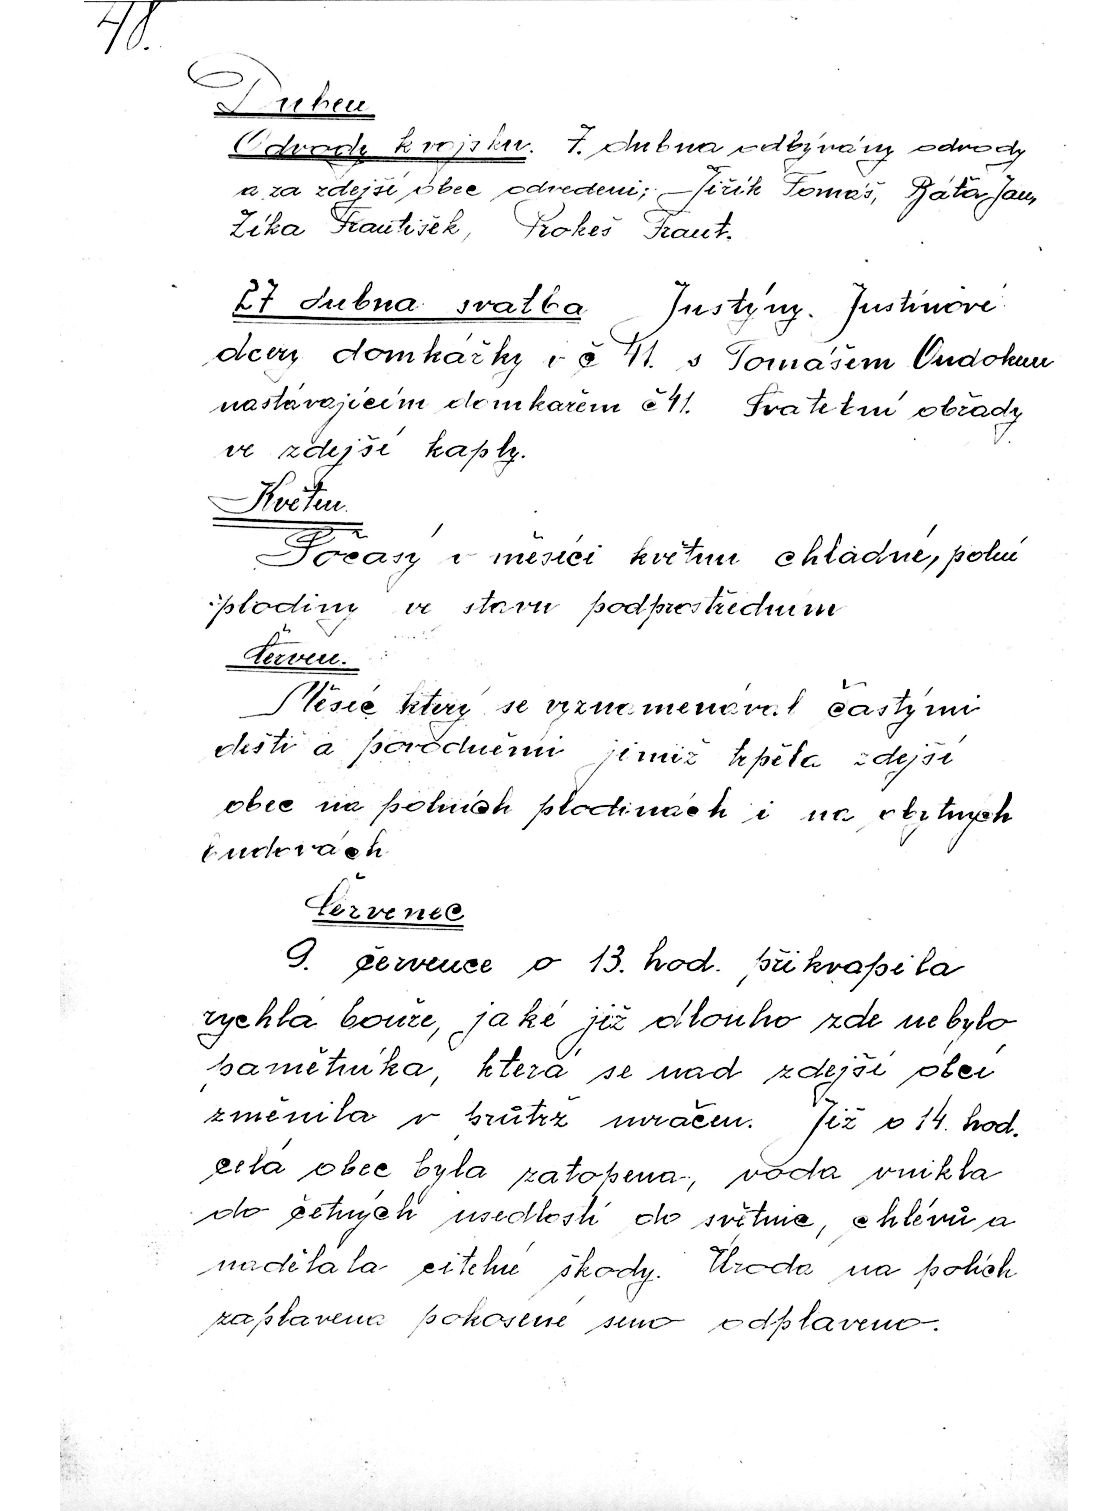 48.
Duben
Odvody k vojsku. 7. dubna odbývány odvody
a za zdejší obec odvedeni; Jiřík Tomáš, Báťa Jan,
Zíka František, Prokeš Frant.
27 dubna svatba Justýny. Justinové
dcery domkářky v č 41. s Tomášem
nastávajícím domkařem č 41. Svatební obřady
ve zdejší kaply.
Květen.
Počasý v měsíci květnu chladné, polní
plodiny ve stavu podprostředním
Červen.
Měsíc který se vyznamenával častými
dešti a povodněmi jimiž trpěla zdejší
obec na polních plodinách i na obytných
budovách
Červenec
9. července o 13. hod. přikvapila
rychlá bouře, jaké již dlouho zde nebylo
pamětníka, která se nad zdejší obcí
změnila v průtrž mračen. Již o 14. hod.
celá obec byla zatopena, voda vnikla
do četných usedlostí do světnic, chlévů a
nadělala citelné škody. Úroda na polích
zaplavena pokosené seno odplaveno.